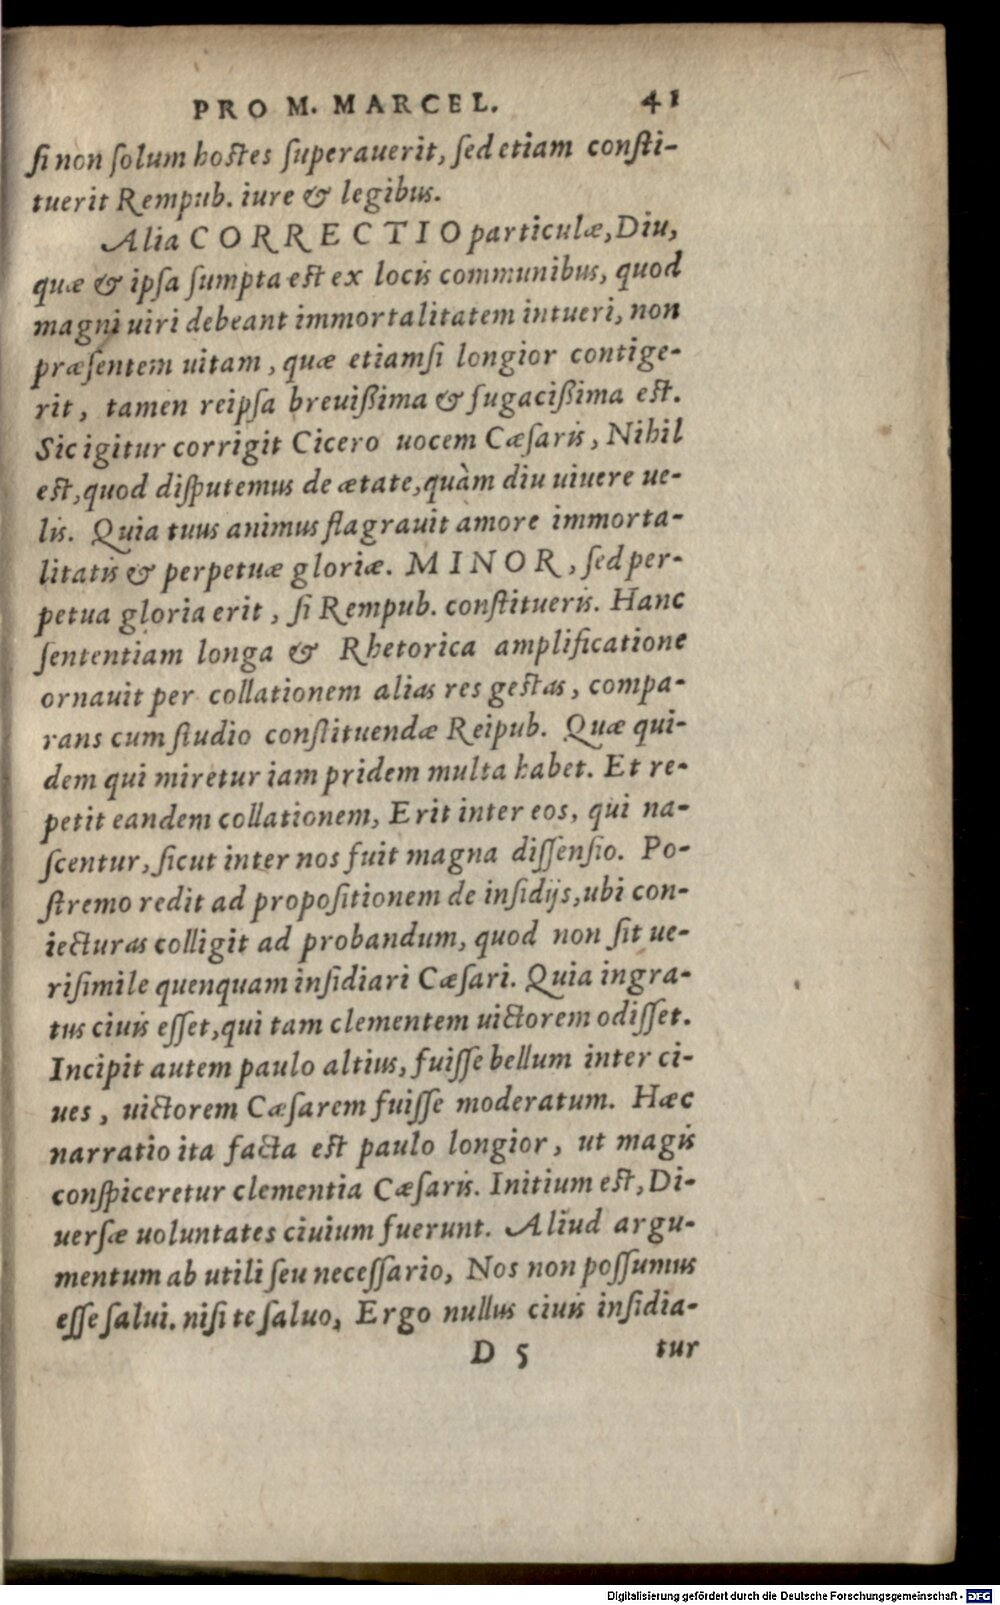 PRO M. MARCEL. 41
si non solum hostes superauerit, sed etiam consti-
tuerit Rempub. iure & legibus.
Alia CORRECTIO particulæ, Diu,
quæ & ipsa sumpta est ex locis communibus, quod
magni uiri debeant immortalitatem intueri, non
præsentem uitam, quæ etiamsi longior contige-
rit, tamen reipsa breuißima & fugacißima est.
Sic igitur corrigit Cicero uocem Cæsaris, Nihil
est, quod disputemus de ætate, quàm diu uiuere ue-
lis. Quia tuus animus flagrauit amore immorta-
litatis & perpetuæ gloriæ. MINOR, sed per-
petua gloria erit, si Rempub. constitueris. Hanc
sententiam longa & Rhetorica amplificatione
ornauit per collationem alias res gestas, compa-
rans cum studio constituendæ Reipub. Quæ qui-
dem qui miretur iam pridem multa habet. Et re-
petit eandem collationem, Erit inter eos, qui na-
scentur, sicut inter nos fuit magna dissensio. Po-
stremo redit ad propositionem de insidijs, ubi con-
iecturas colligit ad probandum, quod non sit ue-
risimile quenquam insidiari Cæsari. Quia ingra-
tus ciuis esset, qui tam clementem uictorem odisset.
Incipit autem paulo altius, fuisse bellum inter ci-
ues, uictorem Cæsarem fuisse moderatum. Hæc
narratio ita facta est paulo longior, ut magis
conspiceretur clementia Cæsaris. Initium est, Di-
uersæ uoluntates ciuium fuerunt. Aliud argu-
mentum ab utili seu necessario, Nos non possumus
esse salui. nisi te saluo, Ergo nullus ciuis insidia-
D 5 tur
Digitalisierung gefördert durch die Deutsche Forschungsgemeinschaft - DFG